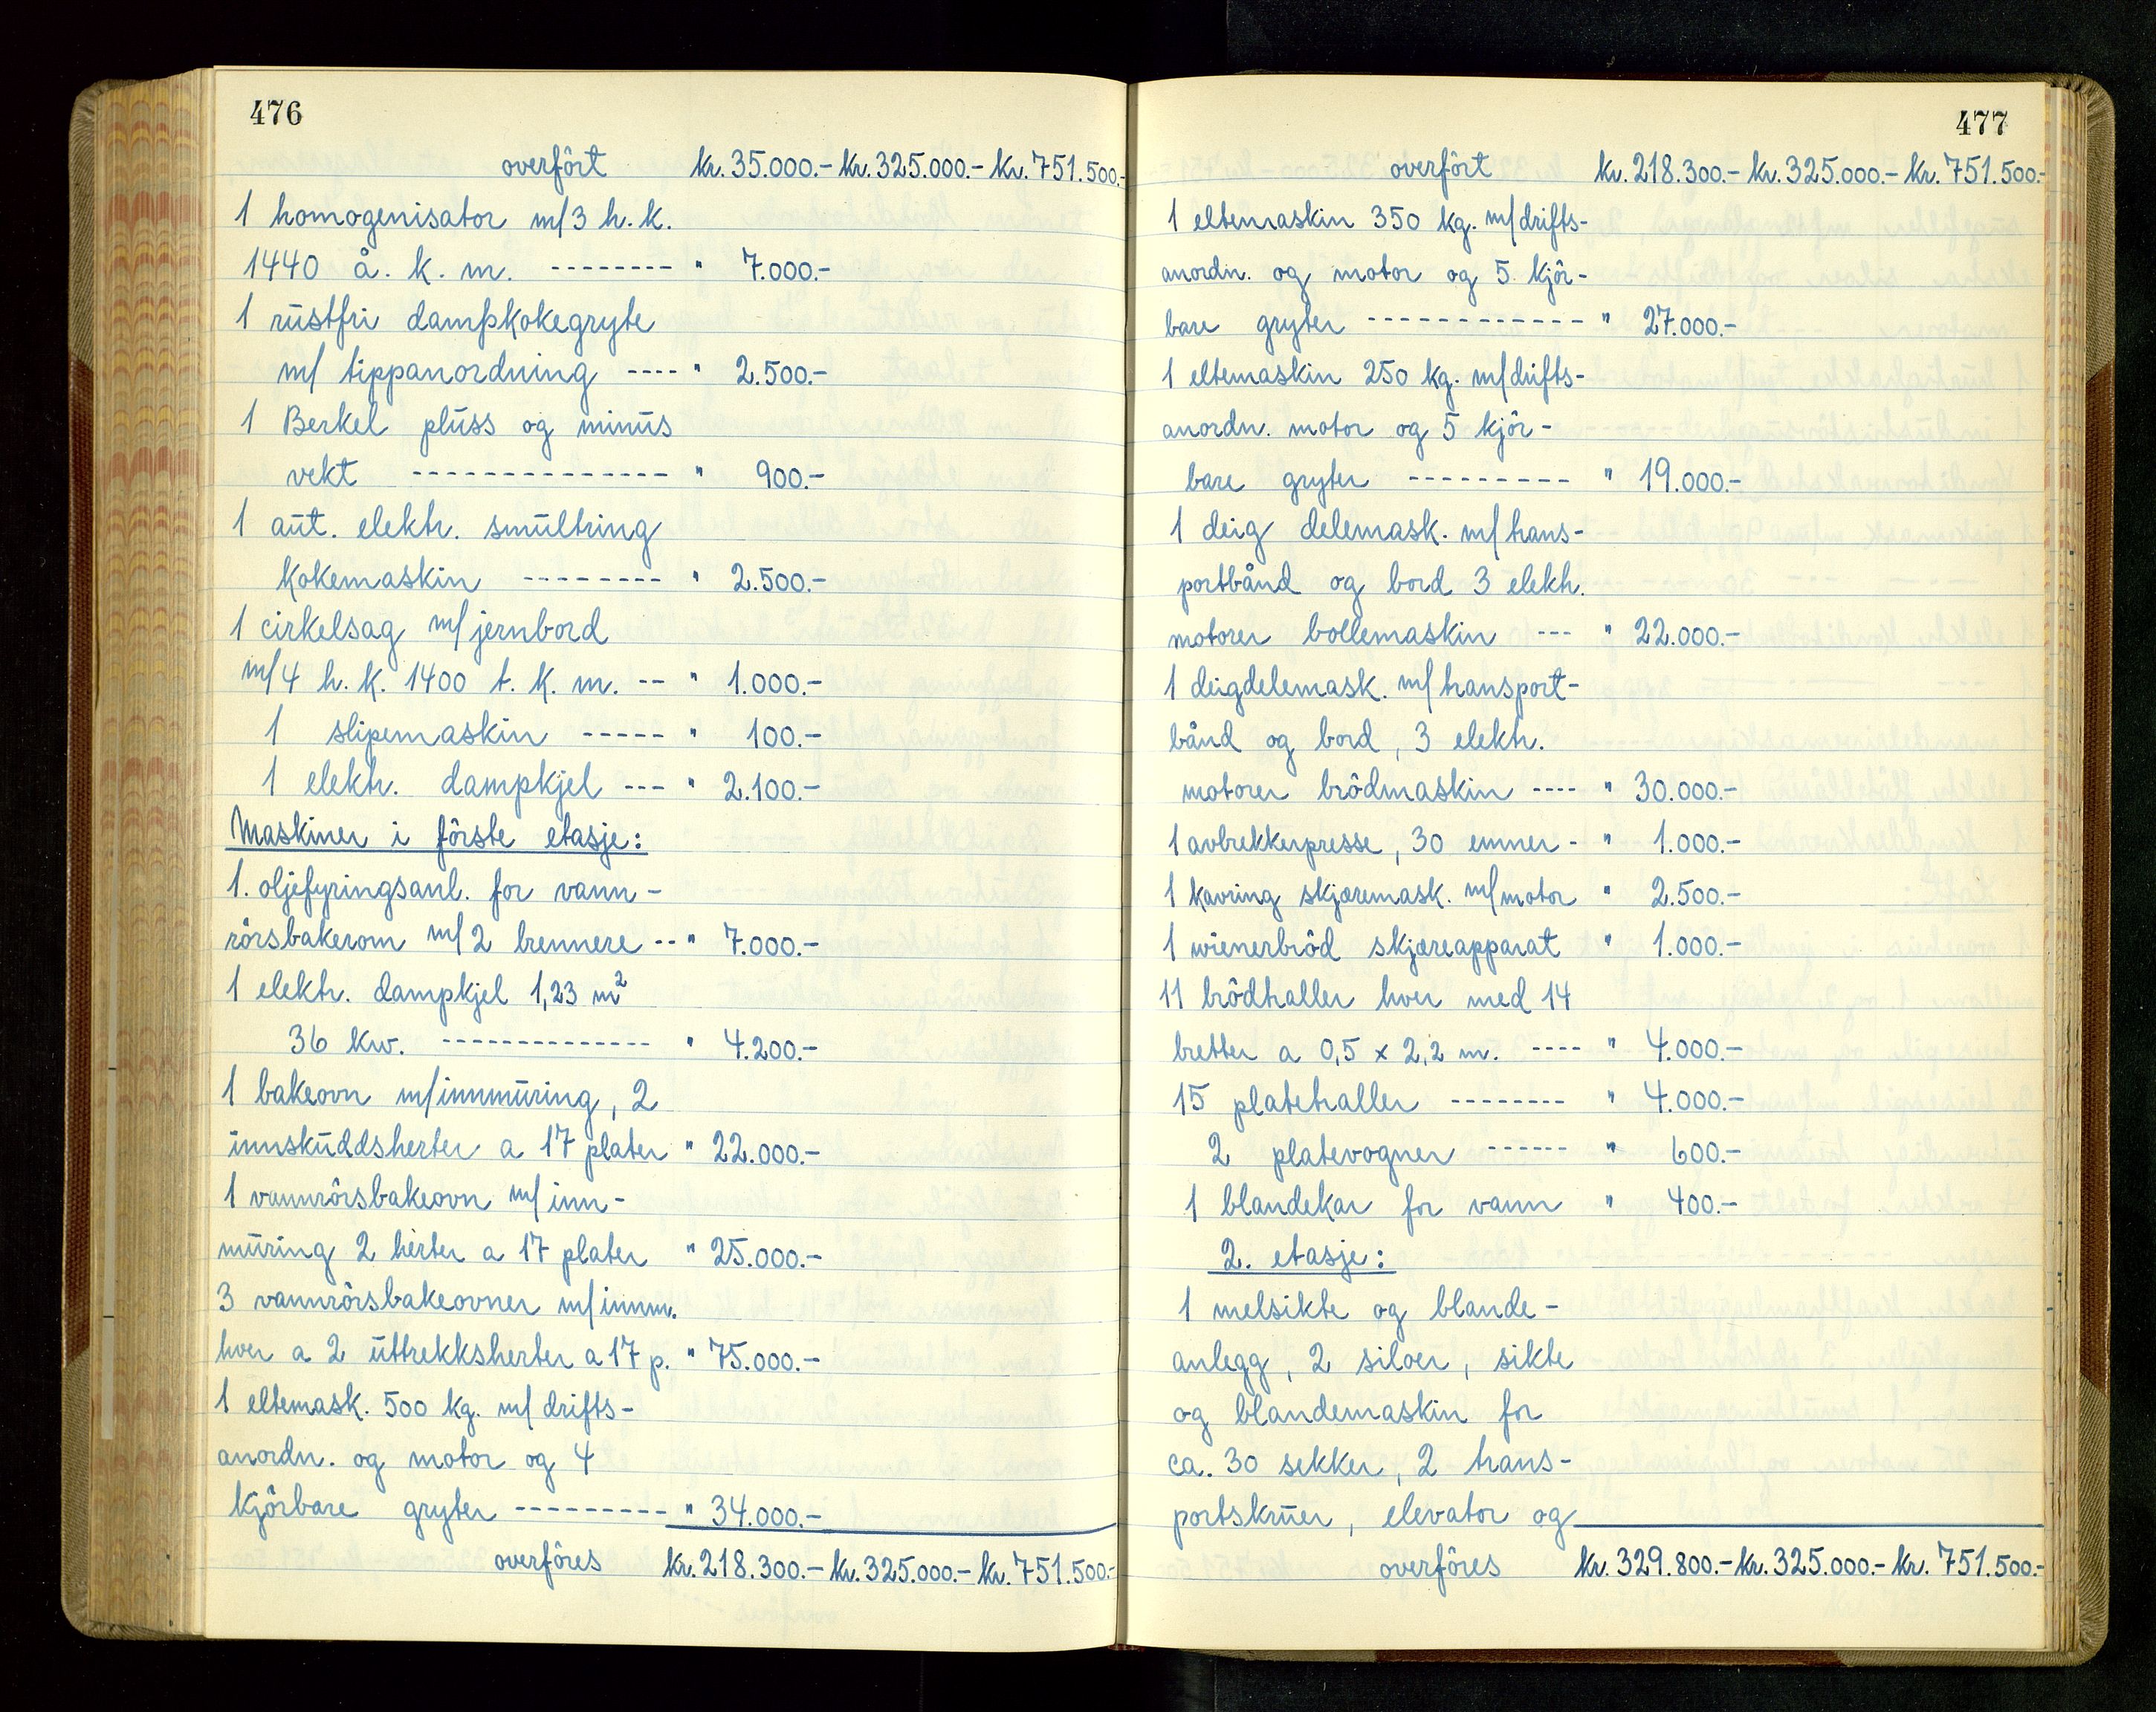 476
overfört kr. 35.000.- kr. 325.000.- kr. 751.500.-
1 homogenisator m/3 h.k.
1440 å. k. m. -------- " 7.000.-
1 rustfri dampkokegryte
m/ tippanordning ---- " 2.500.-
1 Berkel pluss og minus
vekt -------------- " 900.-
1 aut. elektr. smultring
kokemaskin -------- " 2.500.-
1 cirkelsag m/jernbord
m/4 h.k. 1400 t. k. m. -- " 1.000.-
1 slipemaskin ----- " 100.-
1 elektr. dampkjel --- " 2.100.-
Maskiner i förste etasje:
1. oljefyringsanl. for vann-
rörsbakerom m/2 brennere -- " 7.000.-
1 elektr. dampkjel 1,23 m²
36 kw. -------------- " 4.200.-
1 bakeovn m/innmuring, 2
innskuddsherter a 17 plater " 22.000.-
1 vannrörsbakeovn m/inn-
muring 2 herter a 17 plater " 25.000.-
3 vannrörsbakeovner m/innm.
hver a 2 uttrekksherter a 17 p. " 75.000.-
1 eltemask. 500 kg. m/ drifts-
anordn. og motor og 4
kjörbare gryter --------- " 34.000.-
overföres kr. 218.300.- kr. 325.000.- kr. 751.500.-
477
overfört kr. 218.300.- kr. 325.000.- kr. 751.500.-
1 eltemaskin 350 kg. m/drifts-
anordn. og motor og 5 kjör-
bare gryter ------------- " 27.000.-
1 eltemaskin 250 kg. m/drifts-
anordn. motor og 5 kjör-
bare gryter --------- " 19.000.-
1 deig delemask. m/trans-
portbånd og bord 3 elektr.
motorer bollemaskin --- " 22.000.-
1 deigdelemask. m/transport-
bånd og bord, 3 elektr.
motorer brödmaskin ---- " 30.000.-
1 avtrekkerpresse, 30 emner - " 1.000.-
1 kavring skjæremask. m/motor " 2.500.-
1 wienerbröd skjæreapparat " 1.000.-
11 brödtraller hver med 14
bretter a 0,5 x 2,2 m. ---- " 4.000.-
15 platetraller -------- " 4.000.-
2 platevogner ------ " 600.-
1 blandekar for vann " 400.-
2. etasje:
1 melsikte og blande-
anlegg, 2 siloer, sikte
og blandemaskin for
ca. 30 sekker, 2 trans-
portskruer, elevator og
overföres kr. 329.800.- kr. 325.000.- kr. 751.500.-